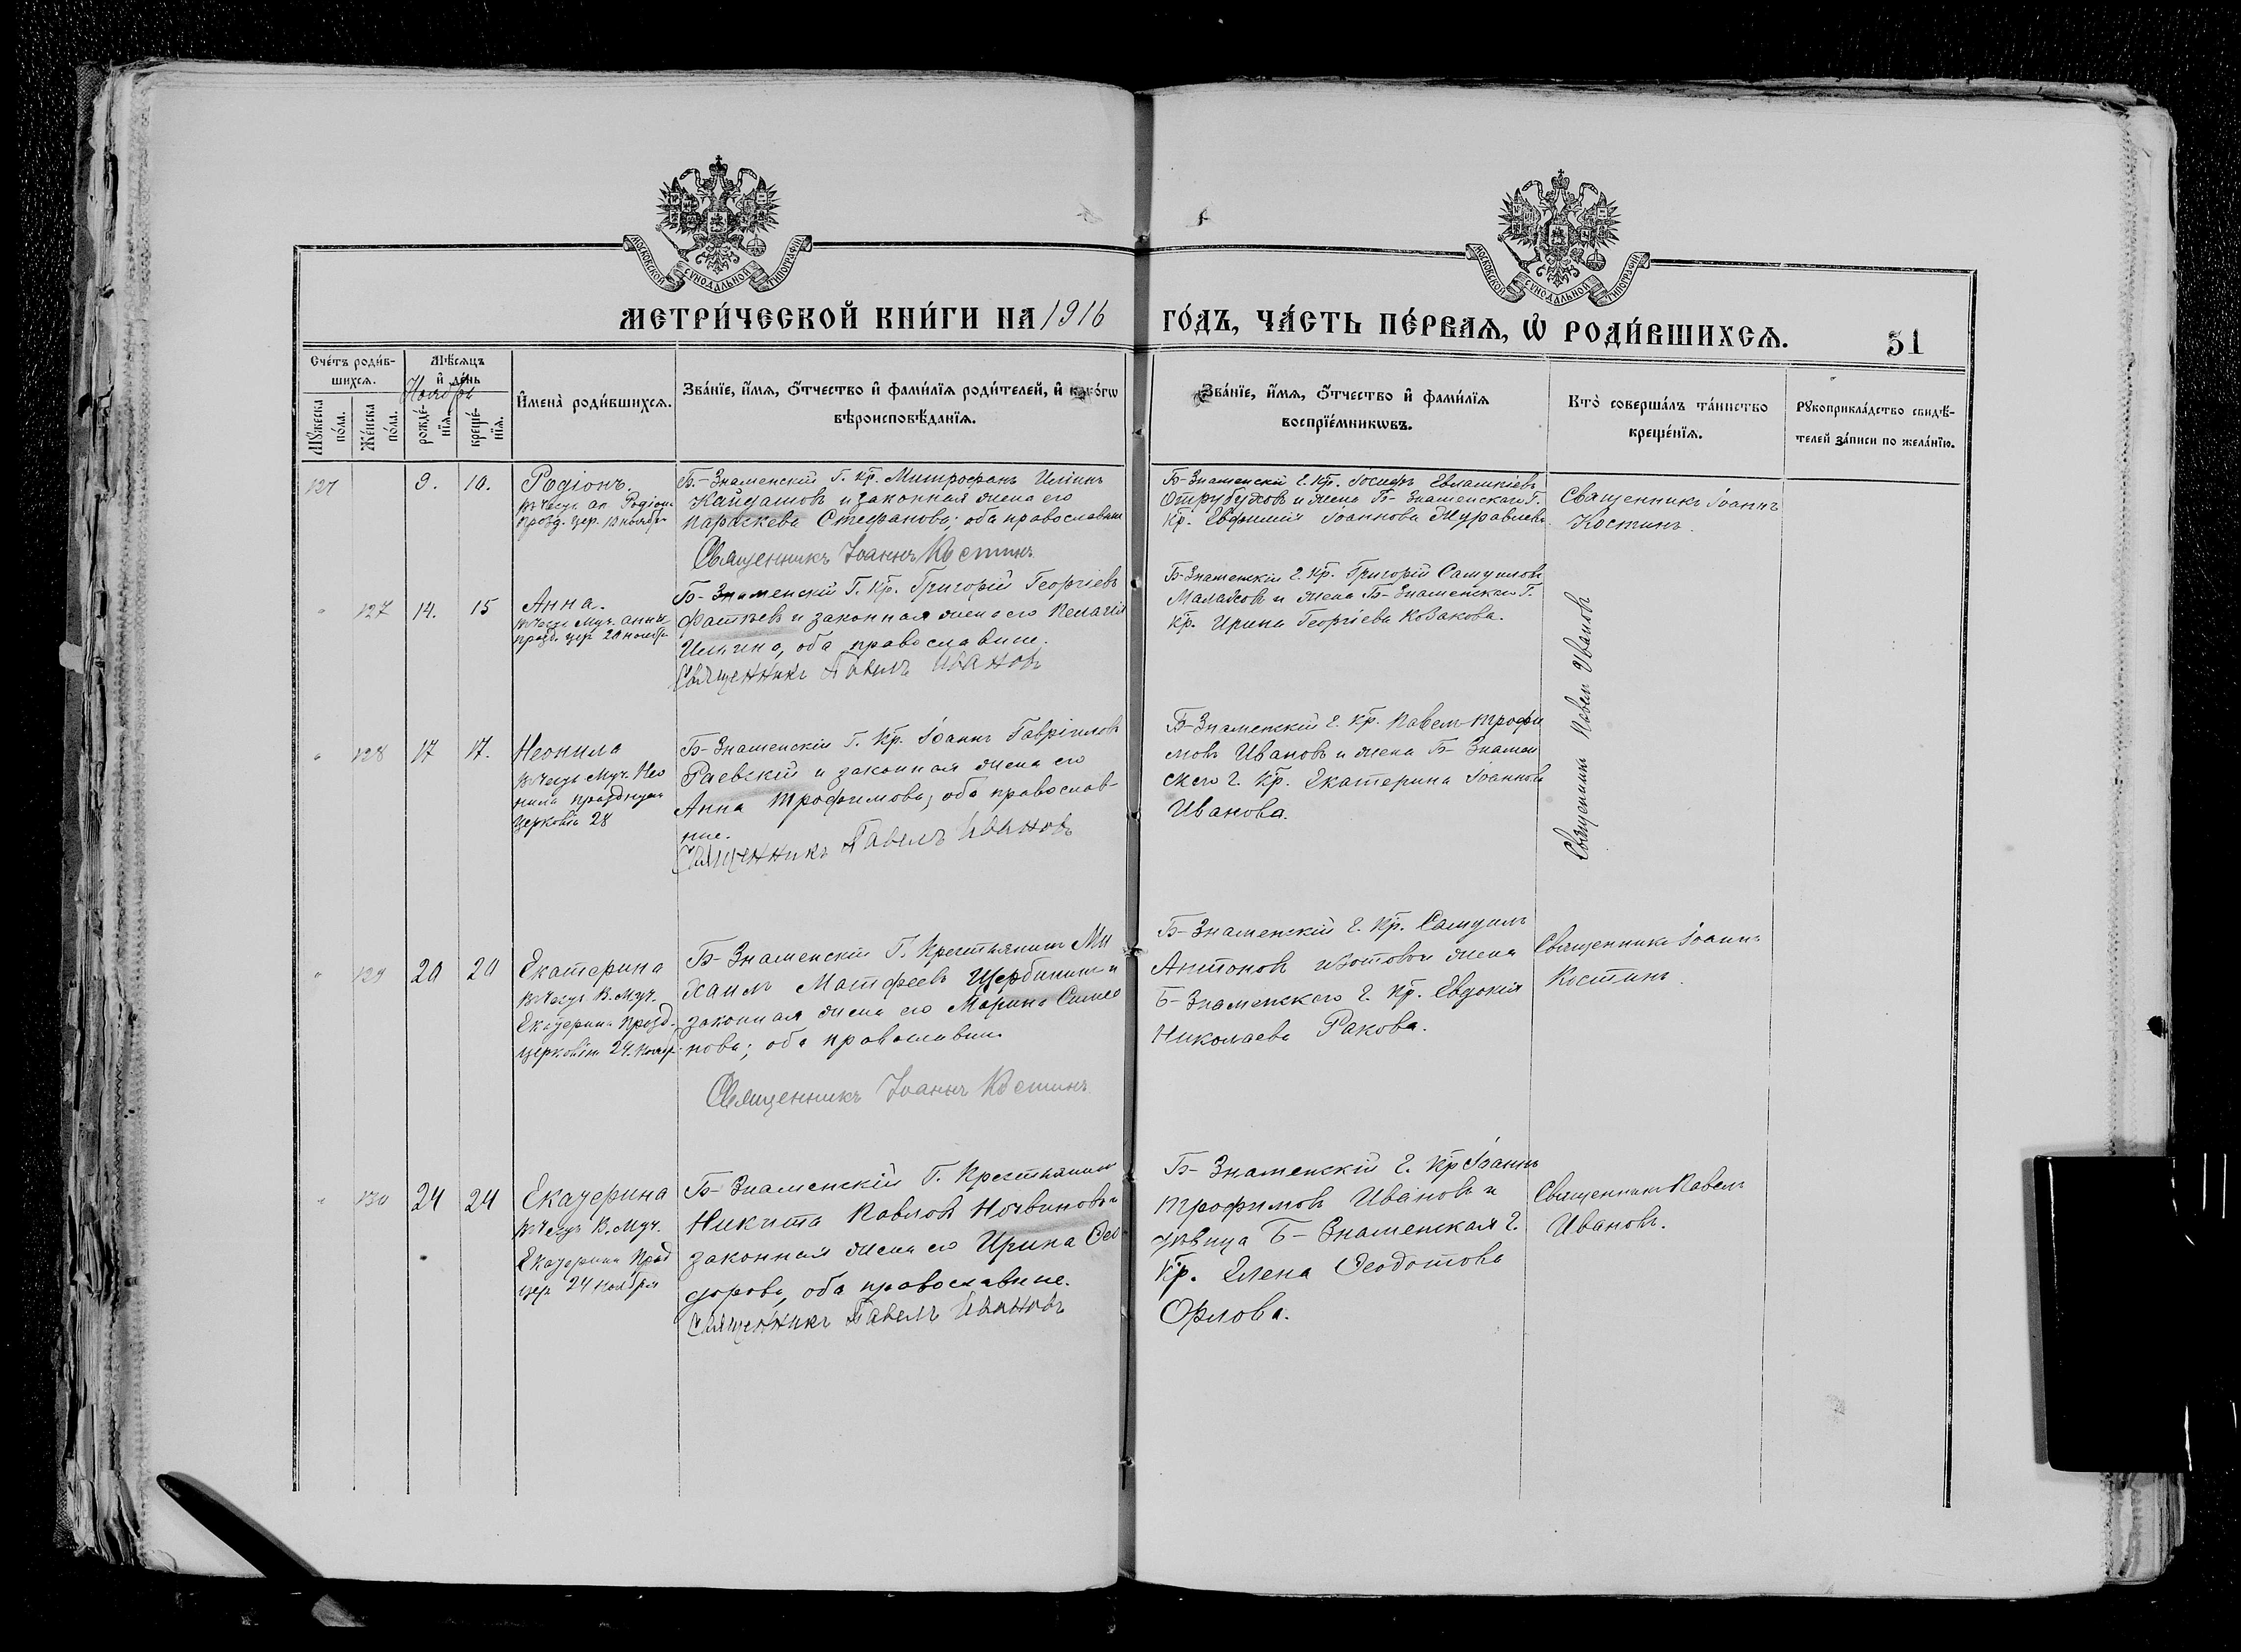 МОСКОВСКОЙ СѴНОДАЛЬНОЙ ТИПОГРАФІИ
МОСКОВСКОЙ СѴНОДАЛЬНОЙ ТИПОГРАФІИ
МЕТРИ́ЧЕСКОЙ КНИ́ГИ НА 1916 ГО́ДЪ, ЧА́СТЬ ПЕ́РВАЯ, Ѡ РОДИ́ВШИХСЯ.
51
Сче́тъ роди́в-
шихся.
Мѣ́сяцъ
и де́нь
Ноябрь
Му́жеска
по́ла.
Же́нска
по́ла.
рожде́-
нія.
креще́-
нія.
Имена̀ роди́вшихся.
Зва́ніе, и́мя, о́тчество и фами́лія роди́телей, и како́гѡ
вѣроисповѣ́данія.
Зва́ніе, и́мя, о́тчество и фами́лія
воспріе́мникѡвъ.
Кто̀ соверша́лъ та́инство
креще́нія.
Рукоприкла́дство свидѣ́-
телей за́писи по жела́нію.
127
9. 10.
Родіонъ.
въ честь ап. Родіона
празд. цер. 10 ноября
Б-Знаменскій Г. Кр. Митрофанъ Иліинъ
Кайдашовъ и законная жена его
Параскева Стефанова; оба православные
Священникъ Іоаннъ Костинъ
Б-Знаменскій Г. Кр. Іосифъ Евлампіевъ
и жена Б-Знаменскаго Г.
Кр. Евфимія Іоаннова Журавлева
Священникъ Іоаннъ
Костинъ.
" 127 14. 15
Анна.
въ честь Муч. Анны
празд. цер. 20 ноября
Б-Знаменскій Г. Кр. Григорій Георгіевъ
Фатѣевъ и законная жена его Пелагія
Ильина, оба православные.
Священникъ Павелъ Ивановъ
Б-Знаменскій Г. Кр. Григорій Самуиловъ
Малаховъ и жена Б-Знаменскаго Г.
Кр. Ирина Георгіева Козакова.
Священникъ Павелъ Ивановъ
" 128 17 17.
Неонила
въ честь Муч. Нео
нила празднуем
церковію 28
Б-Знаменскій Г. Кр. Іоаннъ Гавріиловъ
Раевскій и законная жена его
Анна Трофимова; оба православ-
ные.
Священникъ Павелъ Ивановъ
Б-Знаменскій Г. Кр. Павелъ Трофи
мовъ Ивановъ и жена Б-Знамен
скаго Г. Кр. Екатерина Іоаннова
Иванова.
" 129 20 20
Екатерина
въ честь В. Муч.
Екатерины празд.
церковію 24 ноябр.
Б-Знаменскій Г. Крестьянинъ Ми
хаилъ Матфеевъ Щербининъ и
законная жена его Марина Симео
нова; оба православные
Священникъ Іоаннъ Костинъ
Б-Знаменскій Г. Кр. Самуилъ
Антоновъ Изотовъ и жена
Б-Знаменскаго Г. Кр. Евдокія
Николаева Ракова.
Священникъ Іоаннъ
Костинъ.
" 130 24 24
Екатерина
въ честь В. Муч.
Екатерины празд
цер 24 ноября
Б-Знаменскій Г. Крестьянинъ
Никита Павловъ и
законная жена его Ирина Ѳео
дорова, оба православные.
Священникъ Павелъ Ивановъ
Б-Знаменскій Г. Кр Іоаннъ
Трофимовъ Ивановъ и
дѣвица Б-Знаменская Г.
Кр. Елена Ѳеодотова
Орлова.
Священникъ Павелъ
Ивановъ.